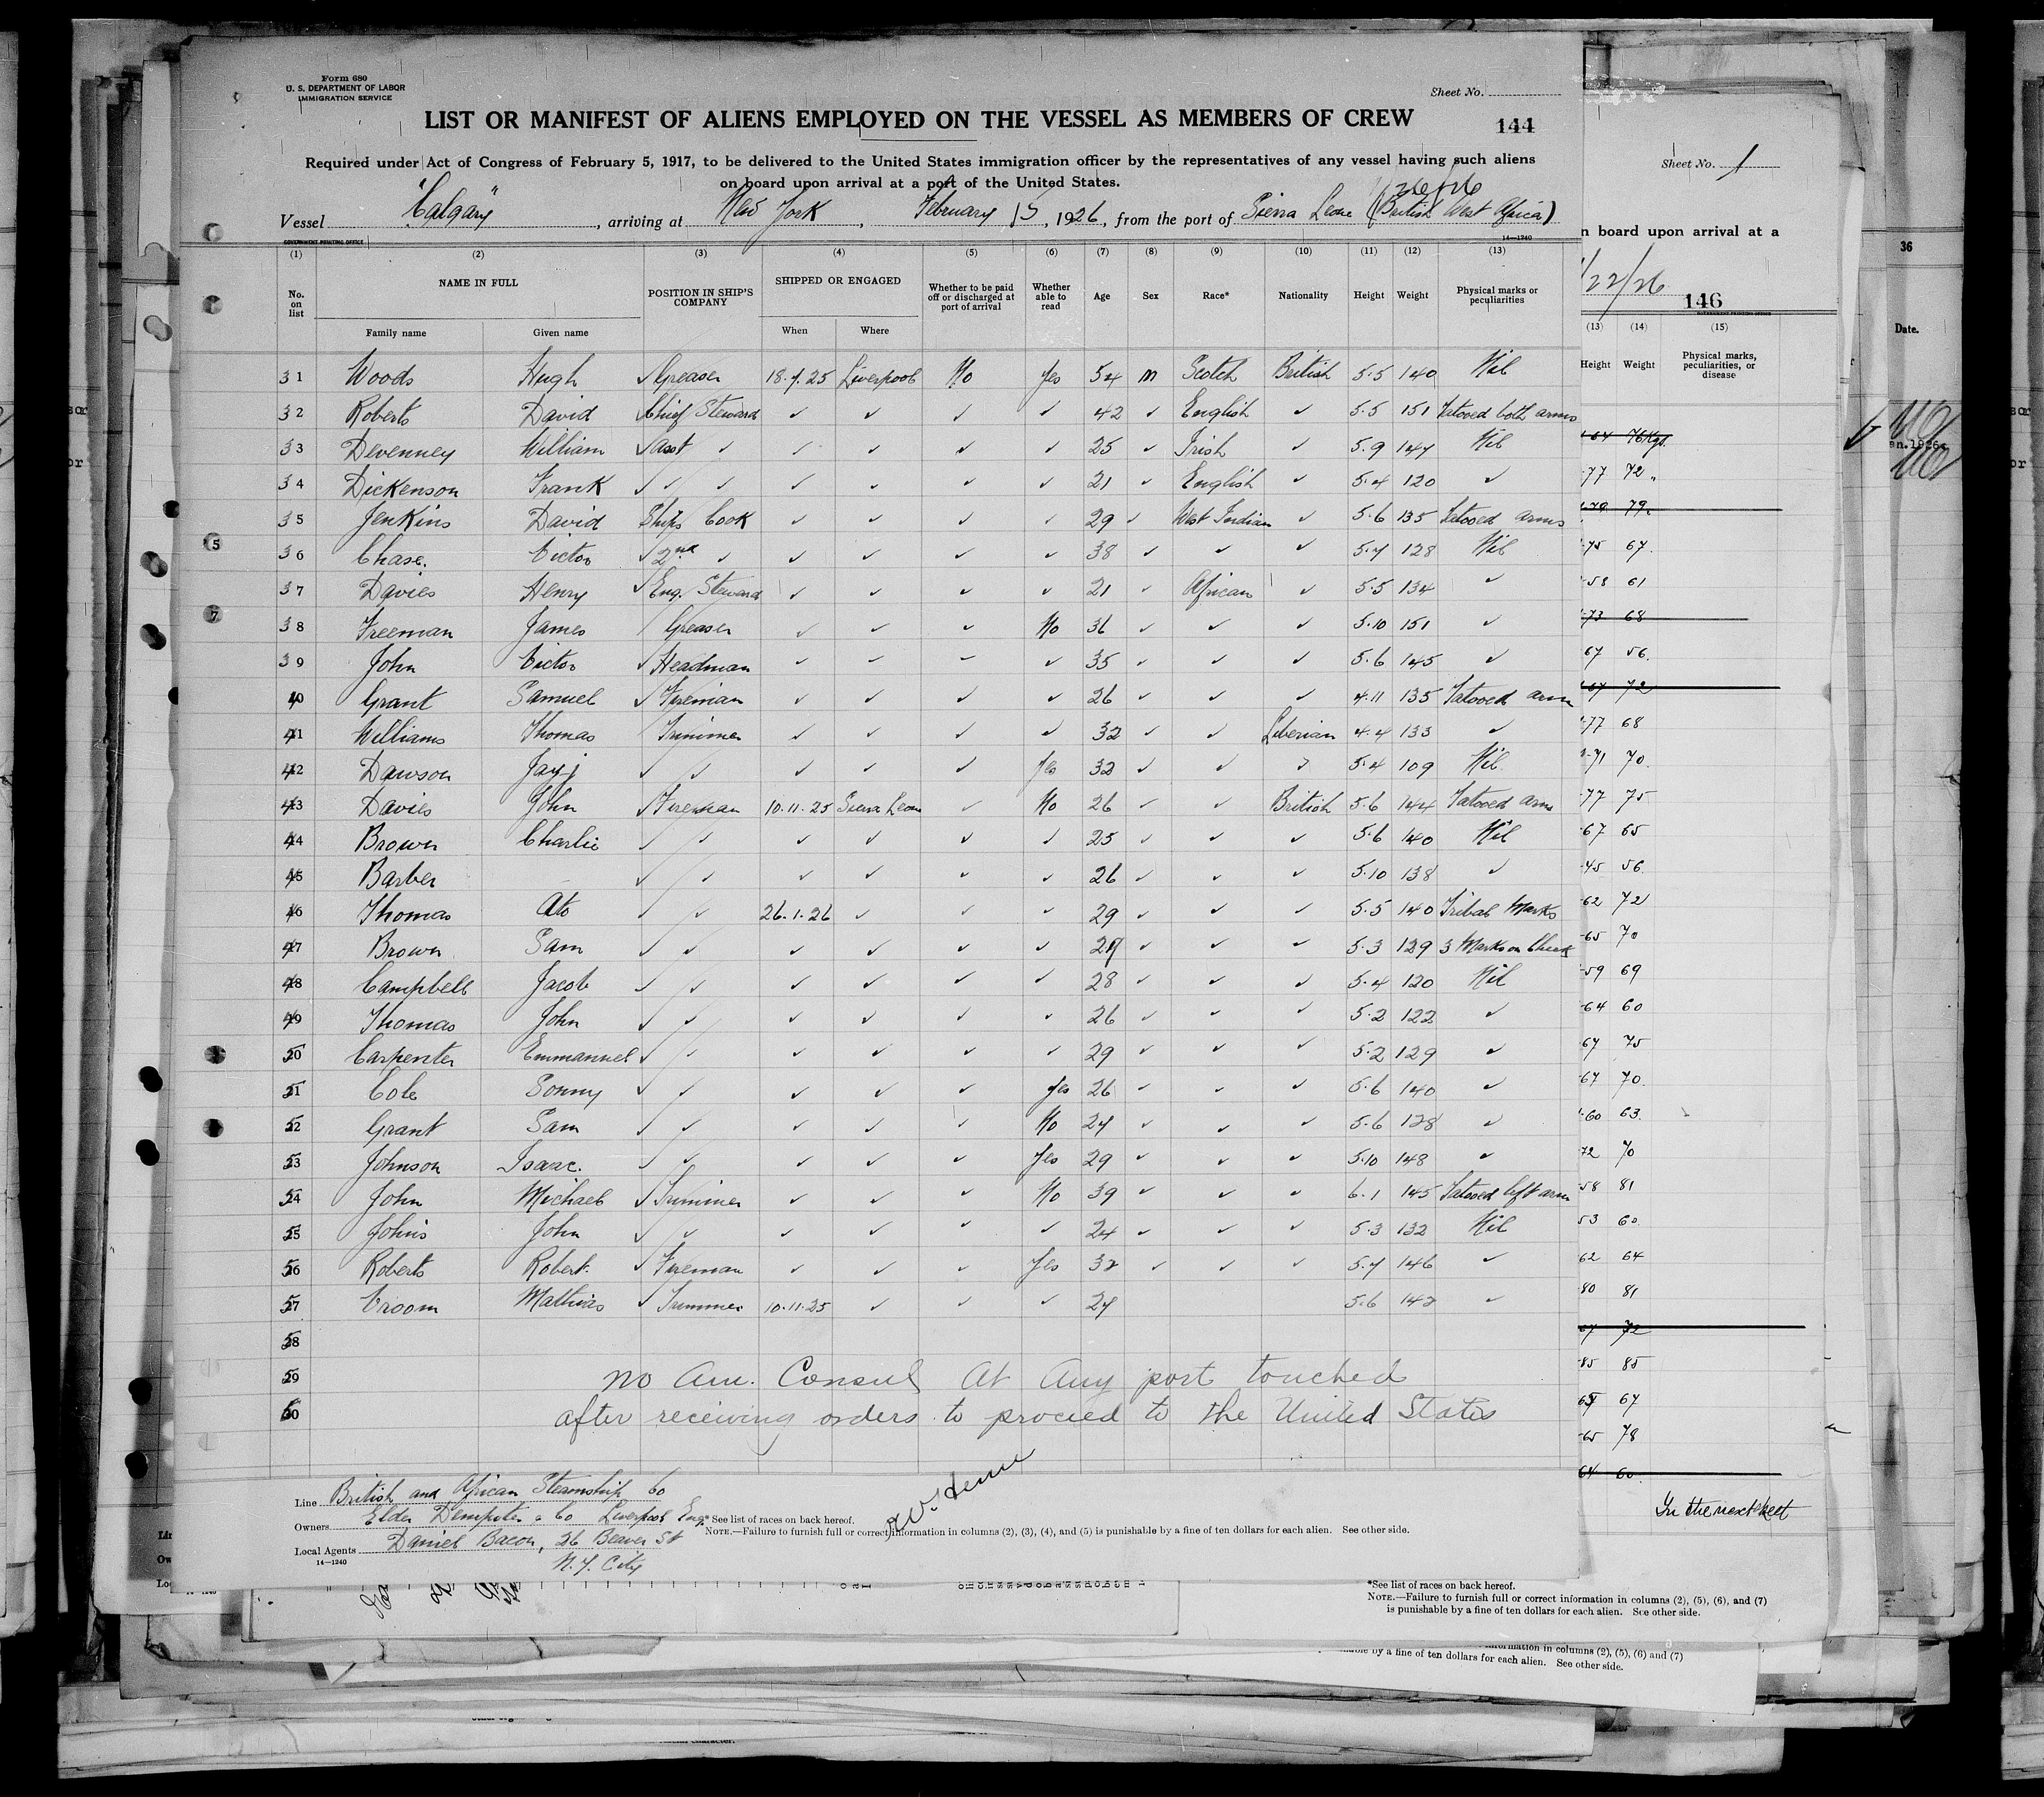 Form 680
U. S. DEPARTMENT OF LABOR
IMMIGRATION SERVICE
Sheet No.
LIST OR MANIFEST OF ALIENS EMPLOYED ON THE VESSEL AS MEMBERS OF CREW
144
Required under Act of Congress of February 5, 1917, to be delivered to the United States immigration officer by the representatives of any vessel having such aliens
on board upon arrival at a port of the United States.
Vessel "Calgary", arriving at New York, February 15, 1926, from the port of Sierra Leone (British West Africa)
GOVERNMENT PRINTING OFFICE 14—1240
(1) (2) (3) (4) (5) (6) (7) (8) (9) (10) (11) (12) (13)
No. on list NAME IN FULL POSITION IN SHIP'S COMPANY SHIPPED OR ENGAGED Whether to be paid off or discharged at port of arrival Whether able to read Age Sex Race* Nationality Height Weight Physical marks or peculiarities
Family name Given name When Where
31 Woods Hugh ✓ Greaser 18.7.25 Liverpool No Yes 54 m Scotch British 5.5 140 Nil
32 Roberts David Chief Steward ✓ ✓ ✓ ✓ 42 ✓ English ✓ 5.5 151 Tatooed both arms
33 Devenney William ✓ asst ✓ ✓ ✓ ✓ ✓ 25 ✓ Irish ✓ 5.9 147 Nil
34 Dickenson Frank ✓ ✓ ✓ ✓ ✓ ✓ ✓ 21 ✓ English ✓ 5.4 120 ✓
35 Jenkins David Ships Cook ✓ ✓ ✓ ✓ 29 ✓ West Indian ✓ 5.6 135 Tatooed arms
36 Chase. Victor ✓ 2nd ✓ ✓ ✓ ✓ ✓ 38 ✓ ✓ ✓ 5.7 128 Nil
37 Davies Henry ✓ Eng. Steward ✓ ✓ ✓ ✓ 21 ✓ African ✓ 5.5 134 ✓
38 Freeman James Greaser ✓ ✓ ✓ No 36 ✓ ✓ ✓ 5.10 151 ✓
39 John Victor ✓ Headman ✓ ✓ ✓ ✓ 35 ✓ ✓ ✓ 5.6 145 ✓
40 Grant Samuel ✓ Fireman ✓ ✓ ✓ ✓ 26 ✓ ✓ ✓ 4.11 135 Tatooed arm
41 Williams Thomas Trimmer ✓ ✓ ✓ ✓ 32 ✓ ✓ Liberian 4.4 133 ✓
42 Dawson Jayj ✓ ✓ ✓ ✓ ✓ Yes 32 ✓ ✓ ✓ 5.4 109 Nil.
43 Davies John ✓ Fireman 10.11.25 Sierra Leone ✓ No 26 ✓ ✓ British 5.6 144 Tatooed arms
44 Brown Charlie ✓ ✓ ✓ ✓ ✓ ✓ 25 ✓ ✓ ✓ 5.6 140 Nil
45 Barber ✓ ✓ ✓ ✓ ✓ ✓ 26 ✓ ✓ ✓ 5.10 138 ✓
46 Thomas Ato ✓ ✓ 26.1.26 ✓ ✓ ✓ 29 ✓ ✓ ✓ 5.5 140 Tribal Marks
47 Brown Sam ✓ ✓ ✓ ✓ ✓ ✓ 27 ✓ ✓ ✓ 5.3 129 3 Marks on Cheek
48 Campbell Jacob ✓ ✓ ✓ ✓ ✓ ✓ 28 ✓ ✓ ✓ 5.4 120 Nil
49 Thomas John ✓ ✓ ✓ ✓ ✓ ✓ 26 ✓ ✓ ✓ 5.2 122 ✓
50 Carpenter Emmanuel ✓ ✓ ✓ ✓ ✓ ✓ 29 ✓ ✓ ✓ 5.2 129 ✓
51 Cole Sonny ✓ ✓ ✓ ✓ ✓ Yes 26 ✓ ✓ ✓ 5.6 140 ✓
52 Grant Sam ✓ ✓ ✓ ✓ ✓ No 24 ✓ ✓ ✓ 5.6 128 ✓
53 Johnson Isaac. ✓ ✓ ✓ ✓ ✓ Yes 29 ✓ ✓ ✓ 5.10 148 ✓
54 John Michael ✓ Trimmer ✓ ✓ ✓ No 39 ✓ ✓ ✓ 6.1 145 Tatooed left arm
55 Johns John ✓ ✓ ✓ ✓ ✓ ✓ 24 ✓ ✓ ✓ 5.3 132 Nil
56 Roberts Robert. ✓ Fireman ✓ ✓ ✓ Yes 32 ✓ ✓ ✓ 5.7 146 ✓
57 Vroom Mathias ✓ Trimmer 10.11.25 ✓ ✓ ✓ 24 5.6 142 ✓
58
59 No Am. Consul at any port touched
60 after receiving orders to proceed to the United States
Line British and African Steamship Co
Owners Elder Dempster & Co Liverpool Eng.
Local Agents Daniel Bacon, 26 Beaver St
N.Y. City
14—1240
*See list of races on back hereof.
NOTE.—Failure to furnish full or correct information in columns (2), (3), (4), and (5) is punishable by a fine of ten dollars for each alien. See other side.
Sheet No. 1
n board upon arrival at a
/22/26
146
GOVERNMENT PRINTING OFFICE
(13) (14) (15)
Height Weight Physical marks, peculiarities, or disease
64 76 Kgs.
77 72 "
79
75 67.
58 61
73 68
67 56.
67 72
77 68
71 70.
77 75
67 65
45 56
62 72
65 70
59 69
64 60
67 75
67 70.
60 63.
72 70
58 81
53 60.
62 64
80 81
67 72
85 85
65 67
65 78
64 60
In the next sheet
*See list of races on back hereof.
NOTE.—Failure to furnish full or correct information in columns (2), (5), (6), and (7)
is punishable by a fine of ten dollars for each alien. See other side.
information in columns (2), (5), (6) and (7)
by a fine of ten dollars for each alien. See other side.
36
Date.
an.1926